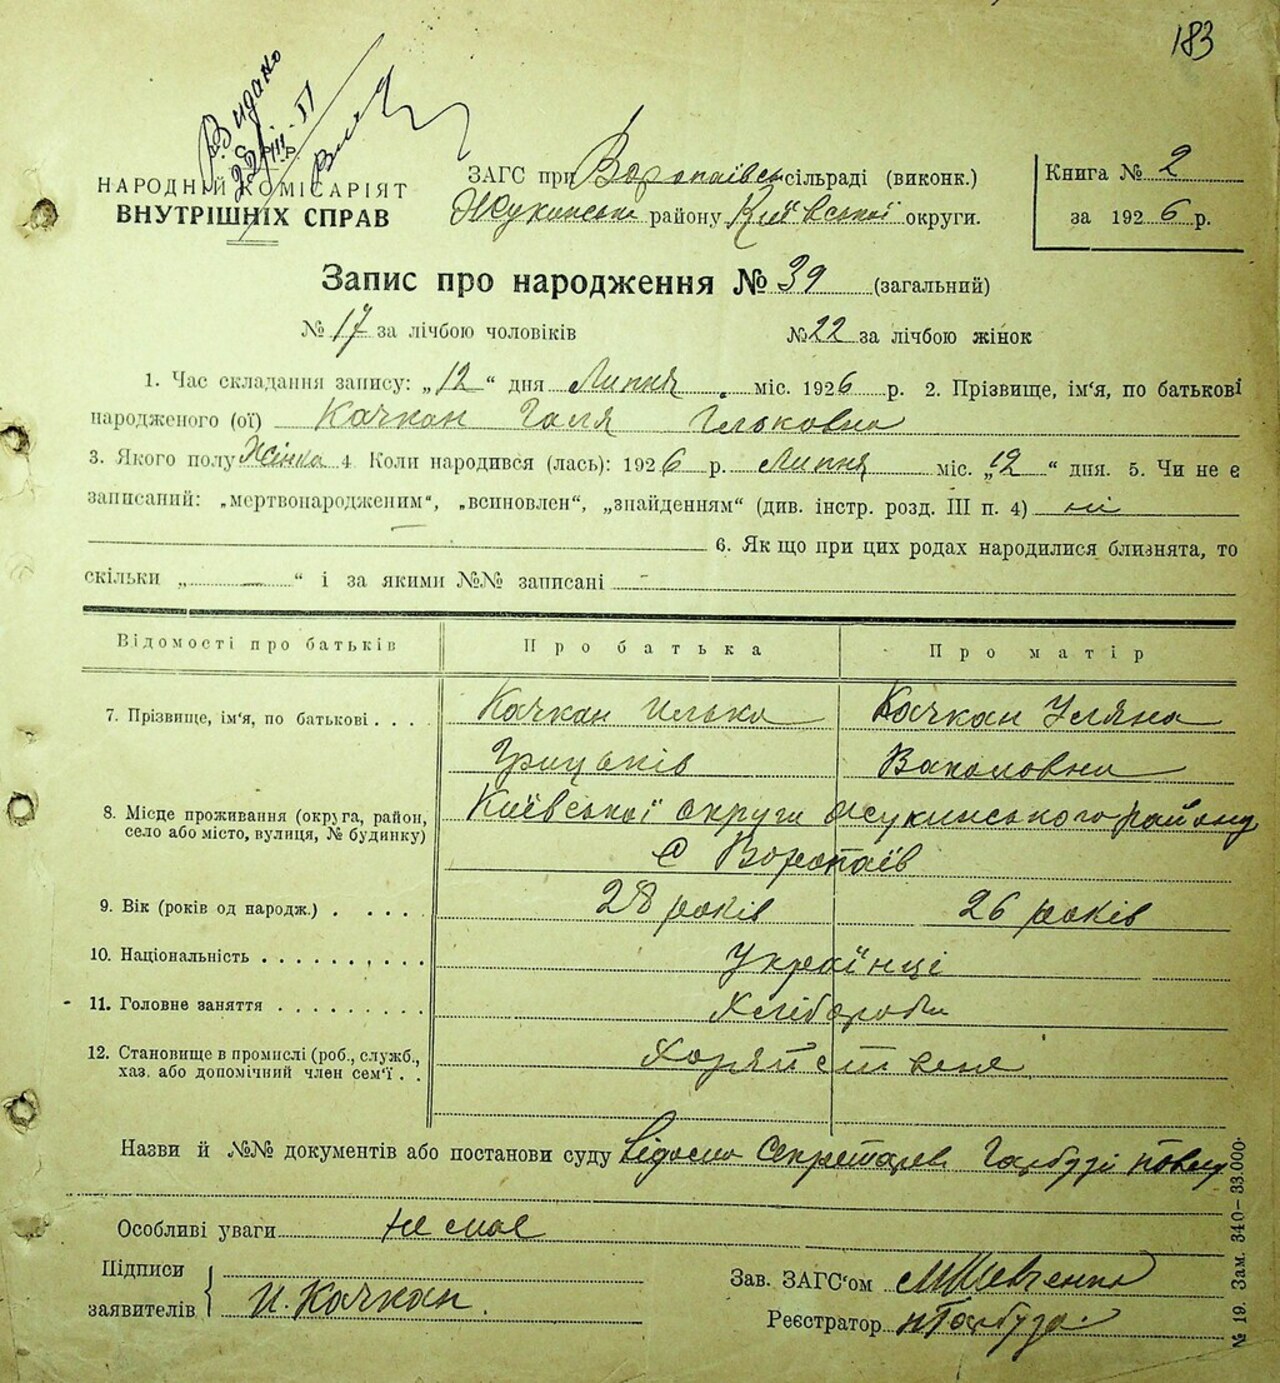 183
Видано
22/III-51
НАРОДНІЙ КОМІСАРІЯТ
ВНУТРІШНІХ СПРАВ
ЗАГС при Воропаівськ сільраді (виконк.)
Жукинського району Київської округи.
Книга № 2
за 1926 р.
Запис про народження № 39 (загальний)
№ 17 за лічбою чоловіків № 22 за лічбою жінок
1. Час складання запису: „12“ дня Липня міс. 1926 р. 2. Прізвище, ім'я, по батькові
народженого (ої) Качкан Галя Ільковна
3. Якого полу Жінка 4 Коли народився (лась): 1926 р. Липня міс. „12“ дня. 5. Чи не є
записаний: „мертвонародженим“, „всиновлен“, „знайденням“ (див. інстр. розд. III п. 4) ні
6. Якщо при цих родах народилися близнята, то
скільки „ — “ і за якими №№ записані -
Відомості про батьків Про батька Про матір
7. Прізвище, ім'я, по батькові . . . . Качкан Илько Качкан Уляна
Грицьків Вакаловна
8. Місце проживання (округа, район, Київської округи Жукинського району
село або місто, вулиця, № будинку) С Воропаїв
9. Вік (років од народж.) . . . . . 28 років 26 років
10. Національність . . . . . . . . . Українці
11. Головне заняття . . . . . . . . . Хлібороби
12. Становище в промислі (роб., служб.,
хаз. або допомічний член сем'ї . . Хозяйственне
Назви й №№ документів або постанови суду відомо Секретарев Гарбузі
Особливі уваги не має
Підписи
заявителів И. Качкан.
Зав. ЗАГС'ом МШевченко
Реєстратор Гарбуза.
№ 19. Зам. 340–33.000.